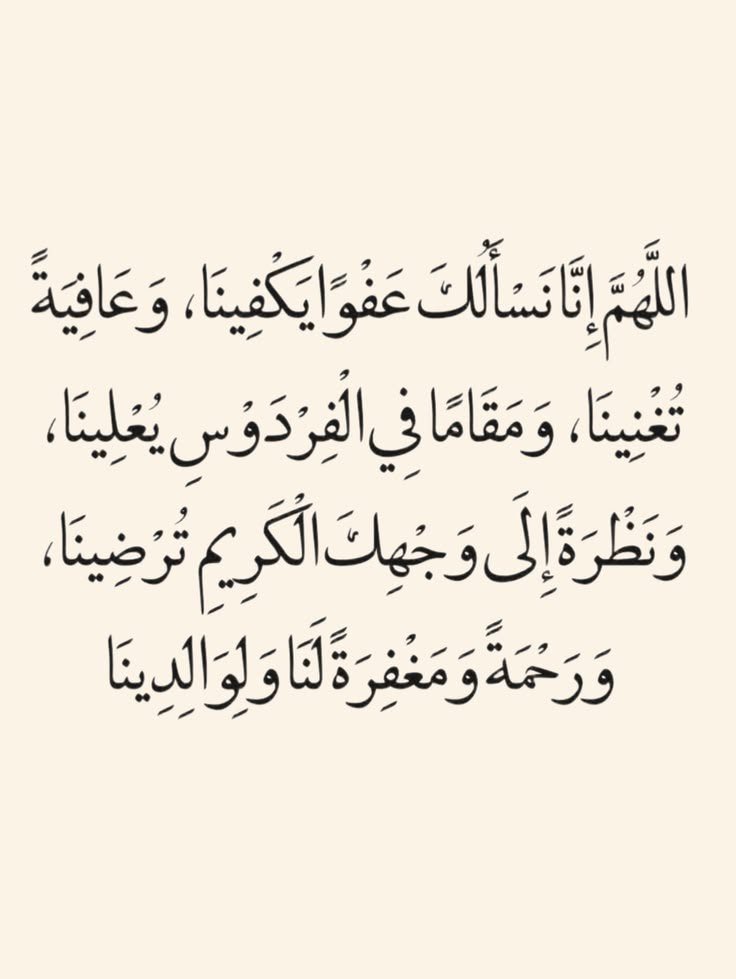 اللَّهُمَّ إِنَّا نَسْأَلُكَ عَفْوًا يَكْفِينَا، وَعَافِيَةً
تُغْنِينَا، وَمَقَامًا فِي الْفِرْدَوْسِ يُعْلِينَا،
وَنَظْرَةً إِلَى وَجْهِكَ الْكَرِيمِ تُرْضِينَا،
وَرَحْمَةً وَمَغْفِرَةً لَنَا وَلِوَالِدِينَا